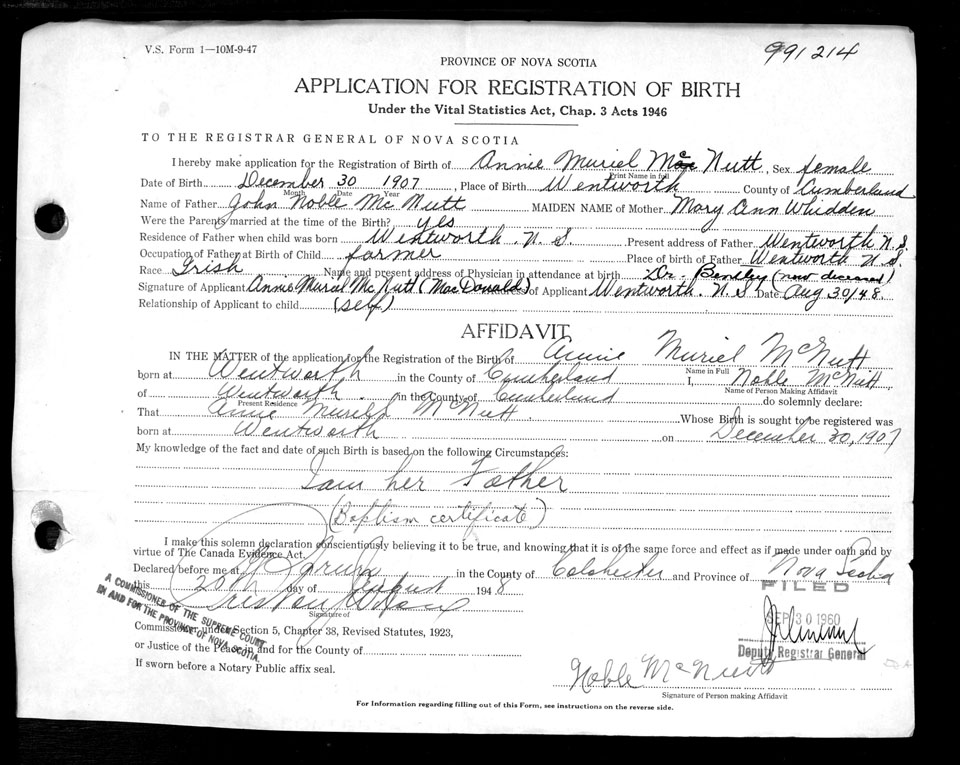 V.S. Form 1—10M-9-47
991214
PROVINCE OF NOVA SCOTIA
APPLICATION FOR REGISTRATION OF BIRTH
Under the Vital Statistics Act, Chap. 3 Acts 1946
TO THE REGISTRAR GENERAL OF NOVA SCOTIA
I hereby make application for the Registration of Birth of Annie Muriel McNutt, Sex female
Print Name in full
Date of Birth December 30 1907, Place of Birth Wentworth County of Cumberland
Month Date Year
Name of Father John Noble McNutt MAIDEN NAME of Mother Mary Ann Whidden
Were the Parents married at the time of the Birth? yes
Residence of Father when child was born Wentworth. N.S. Present address of Father Wentworth N.S.
Occupation of Father at Birth of Child farmer Place of birth of Father Wentworth N.S.
Race Irish Name and present address of Physician in attendance at birth Dr. Bentley (now deceased)
Signature of Applicant Annie Muriel McNutt (MacDonald) Address of Applicant Wentworth. N.S Date Aug 30/48
Relationship of Applicant to child (self)
AFFIDAVIT
IN THE MATTER of the application for the Registration of the Birth of Annie Muriel McNutt
Name in Full
born at Wentworth in the County of Cumberland I, Noble McNutt
Name of Person Making Affidavit
of Wentworth in the County of Cumberland do solemnly declare:
Present Residence
That Annie Muriel McNutt Whose Birth is sought to be registered was
born at Wentworth on December 30, 1907
My knowledge of the fact and date of such Birth is based on the following Circumstances:
I am her Father
(Baptism certificate)
I make this solemn declaration conscientiously believing it to be true, and knowing that it is of the same force and effect as if made under oath and by
virtue of The Canada Evidence Act.
Declared before me at Truro in the County of Colchester and Province of Nova Scotia
this 20th day of August 1948
FILED
SEP 30 1960
Signature of
A COMMISSIONER OF THE SUPREME COURT
IN AND FOR THE PROVINCE OF NOVA SCOTIA.
Commissioner under Section 5, Chapter 38, Revised Statutes, 1923,
or Justice of the Peace in and for the County of
Deputy Registrar General
If sworn before a Notary Public affix seal.
Noble McNutt
Signature of Person making Affidavit
For Information regarding filling out of this Form, see instructions on the reverse side.